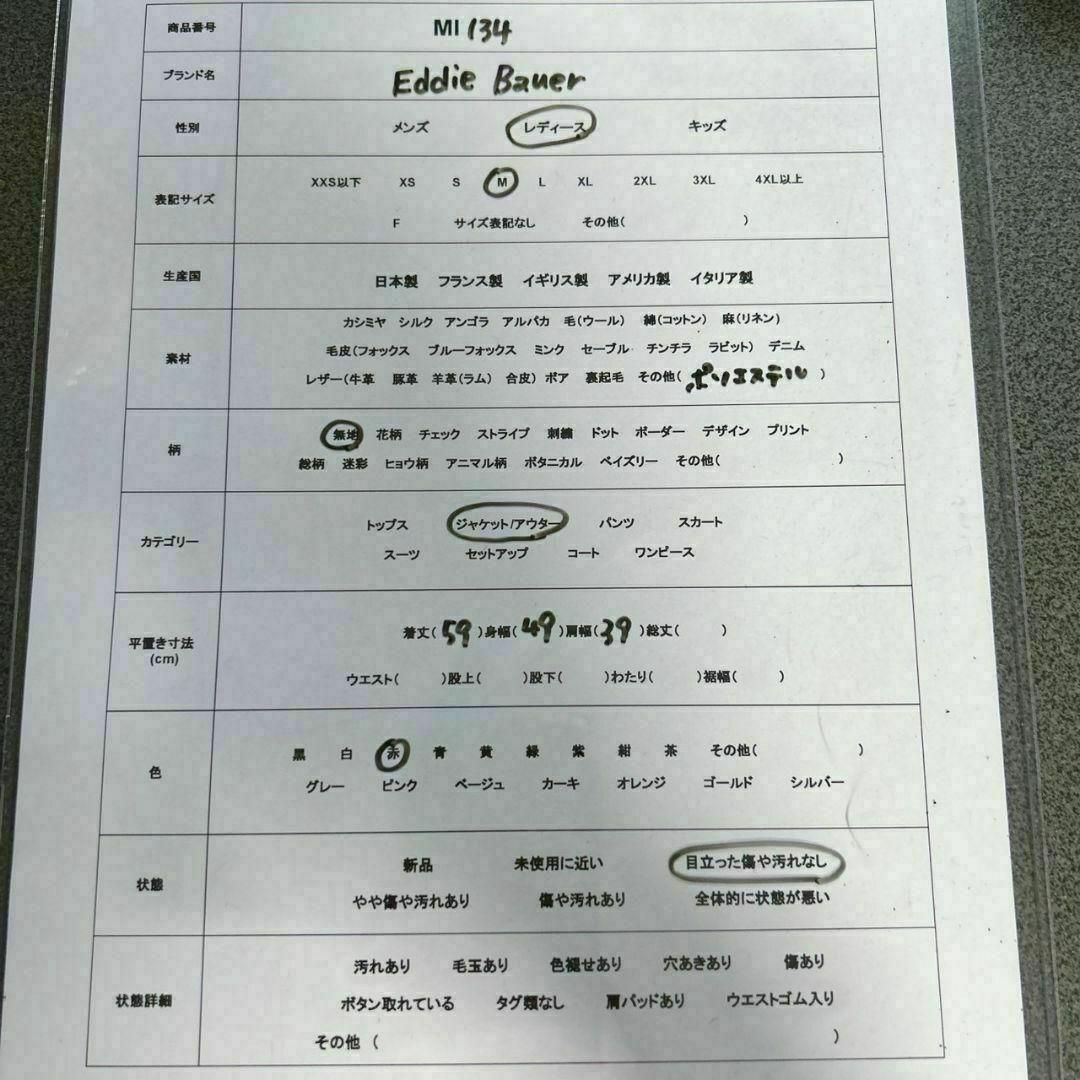 商品番号 MI 134
ブランド名 Eddie Bauer
性別 メンズ レディース キッズ
表記サイズ
XXS以下 XS S M L XL 2XL 3XL 4XL以上
F サイズ表記なし その他( )
生産国 日本製 フランス製 イギリス製 アメリカ製 イタリア製
素材
カシミヤ シルク アンゴラ アルパカ 毛(ウール) 綿(コットン) 麻(リネン)
毛皮(フォックス ブルーフォックス ミンク セーブル チンチラ ラビット) デニム
レザー(牛革 豚革 羊革(ラム) 合皮) ボア 裏起毛 その他( ポリエステル )
柄
無地 花柄 チェック ストライプ 刺繍 ドット ボーダー デザイン プリント
総柄 迷彩 ヒョウ柄 アニマル柄 ボタニカル ペイズリー その他( )
カテゴリー
トップス ジャケット/アウター パンツ スカート
スーツ セットアップ コート ワンピース
平置き寸法
(cm)
着丈( 59 )身幅( 49 )肩幅( 39 )総丈( )
ウエスト( )股上( )股下( )わたり( )裾幅( )
色
黒 白 赤 青 黄 緑 紫 紺 茶 その他( )
グレー ピンク ベージュ カーキ オレンジ ゴールド シルバー
状態
新品 未使用に近い 目立った傷や汚れなし
やや傷や汚れあり 傷や汚れあり 全体的に状態が悪い
状態詳細
汚れあり 毛玉あり 色褪せあり 穴あきあり 傷あり
ボタン取れている タグ類なし 肩パッドあり ウエストゴム入り
その他 ( )